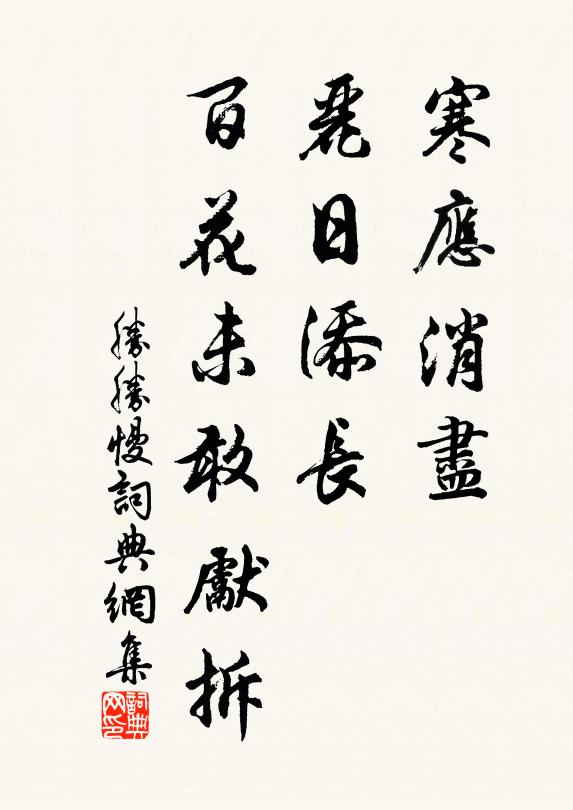 寒應消盡
麗日添長
百花未敢獻拆
勝勝慢詞典網集
詞典網印